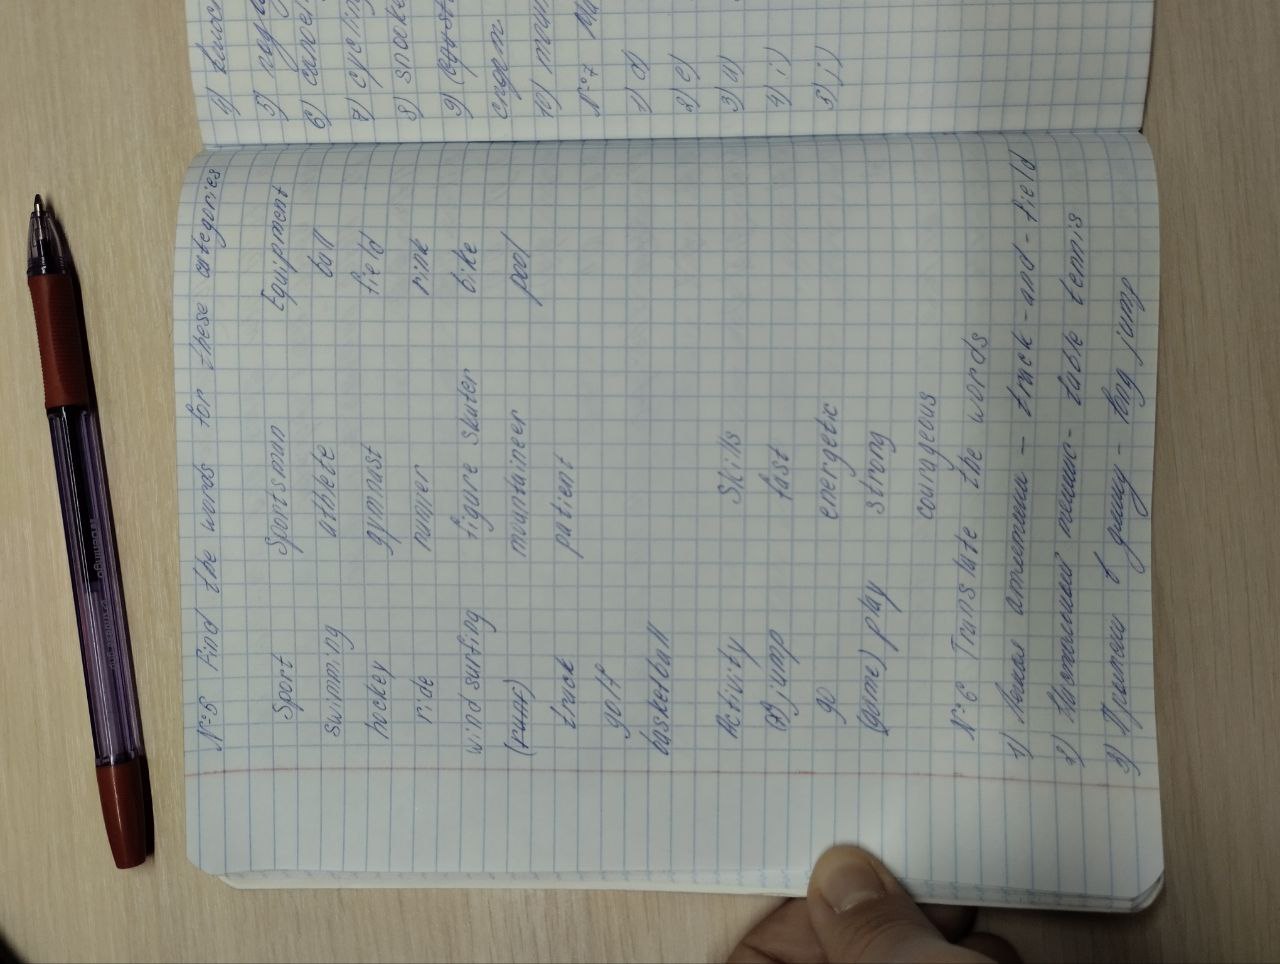 №5 Find the words for these categories
Sport Sportsman Equipment
swimming athlete ball
hockey gymnast field
ride runner rink
windsurfing figure skater bike
(run) mountaineer pool
track patient
golf
basketball
Activity Skills
jump fast
go energetic
(game) play strong
courageous
№6 Translate the words
1) Легкая атлетика - track-and-field
2) Настольный теннис - table tennis
3) Прыжки в длину - long jump
5)
6) canoe
7) cycling
8) snooke
9)
спорт
10) moun
№7
1) d)
2) e)
3) a)
4) i)
5) j)